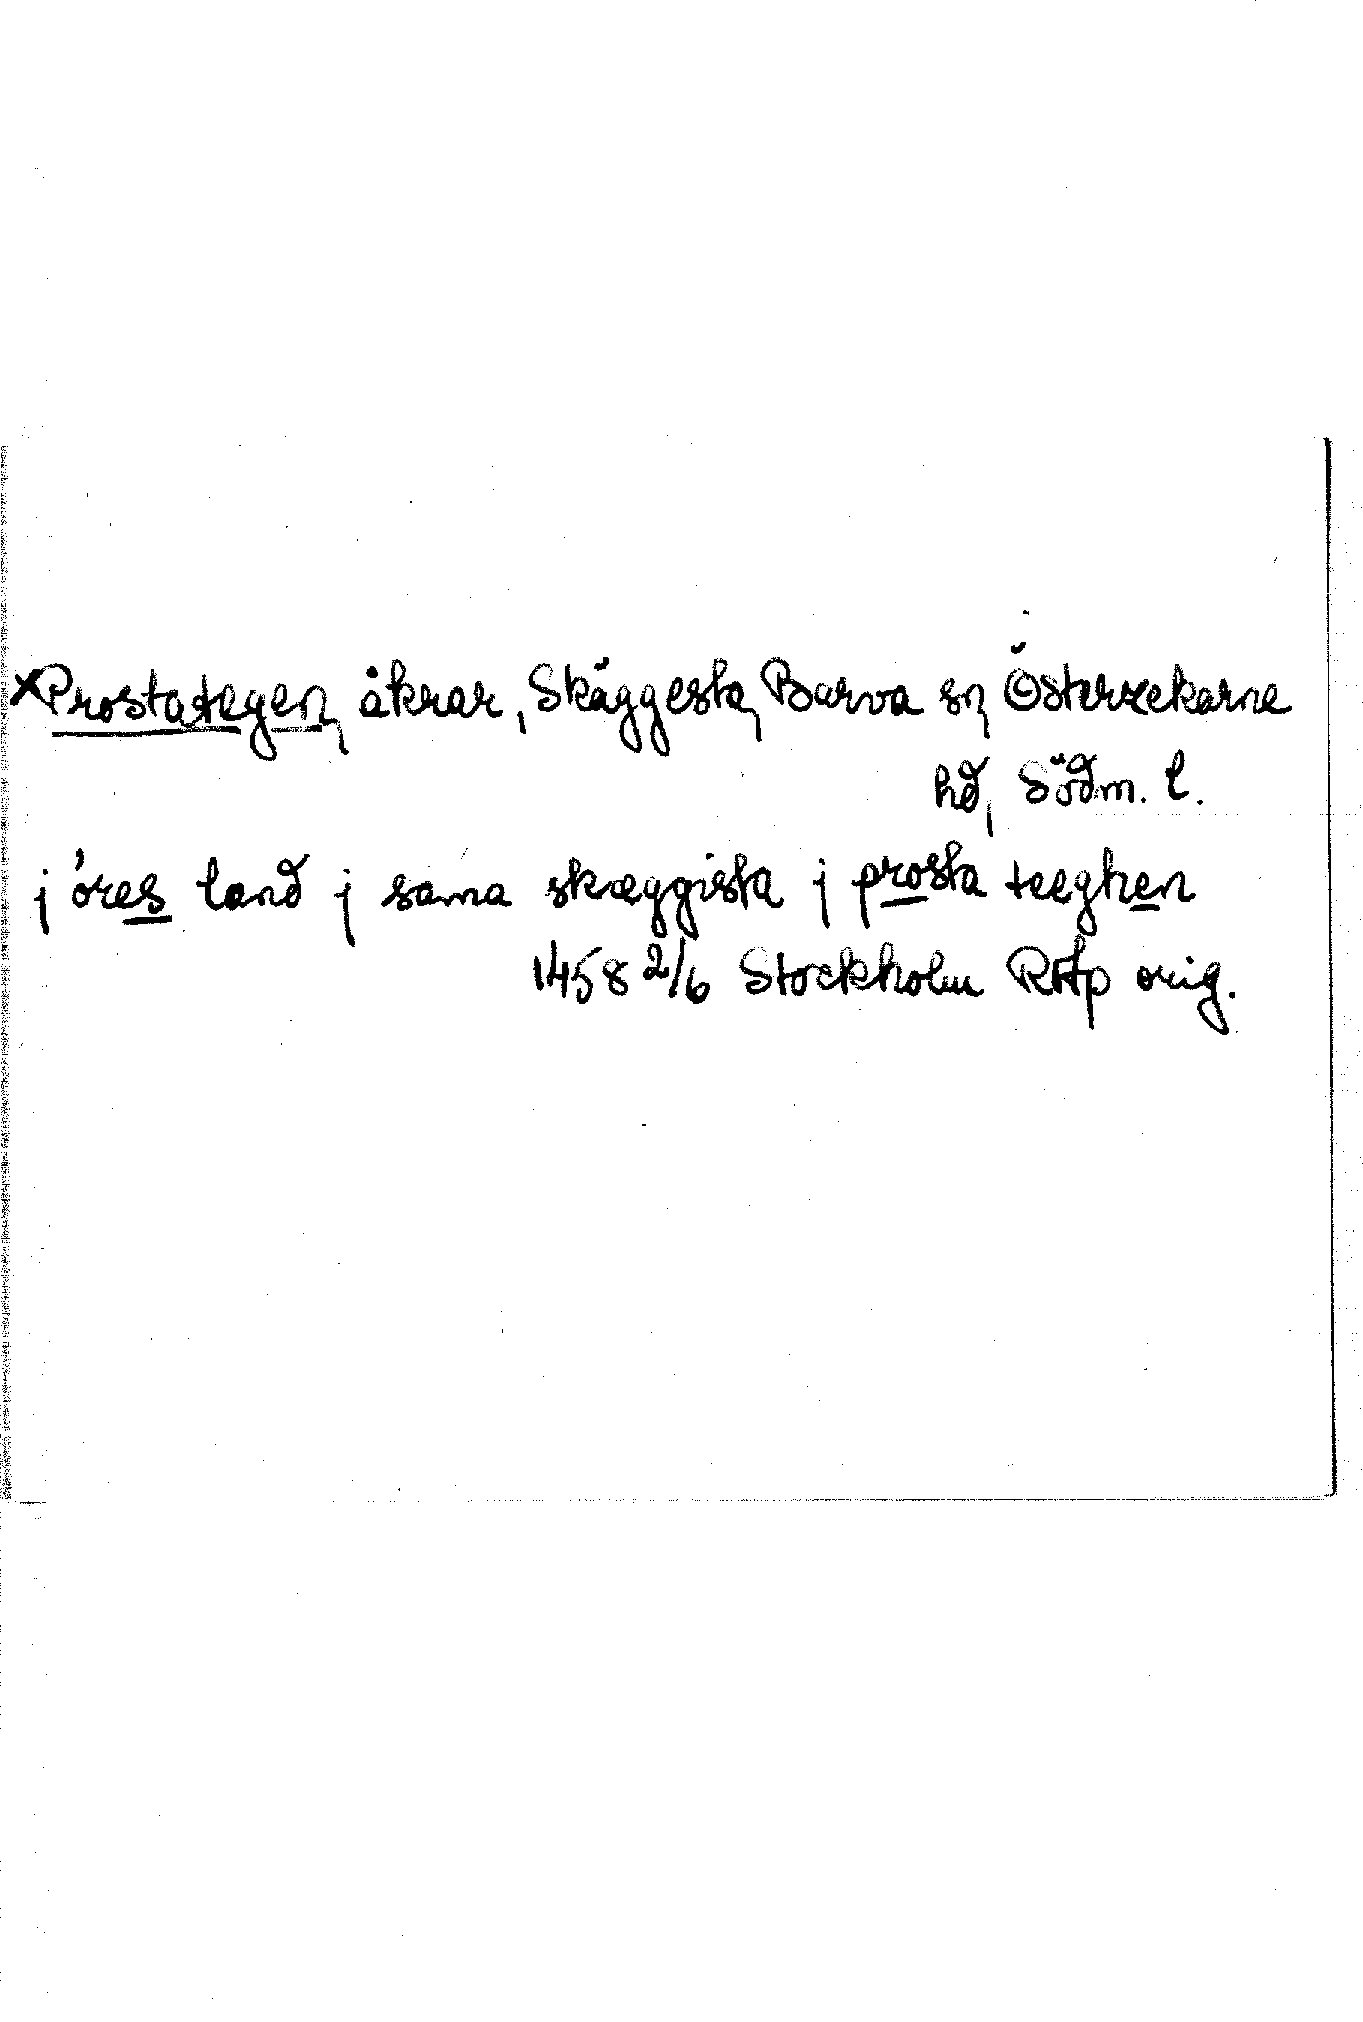 xProstategen, åkrar, Skäggesta, Barva sn, Österrekarne
hd, Södm. l.
j öres land j sama skæggista j prosta teeghen
1458 2/6 Stockholm RAp orig.